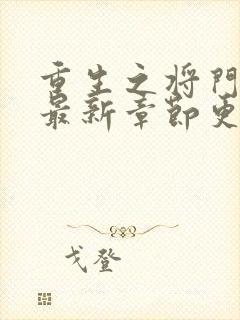 重生之将门
最新章节更
戈登